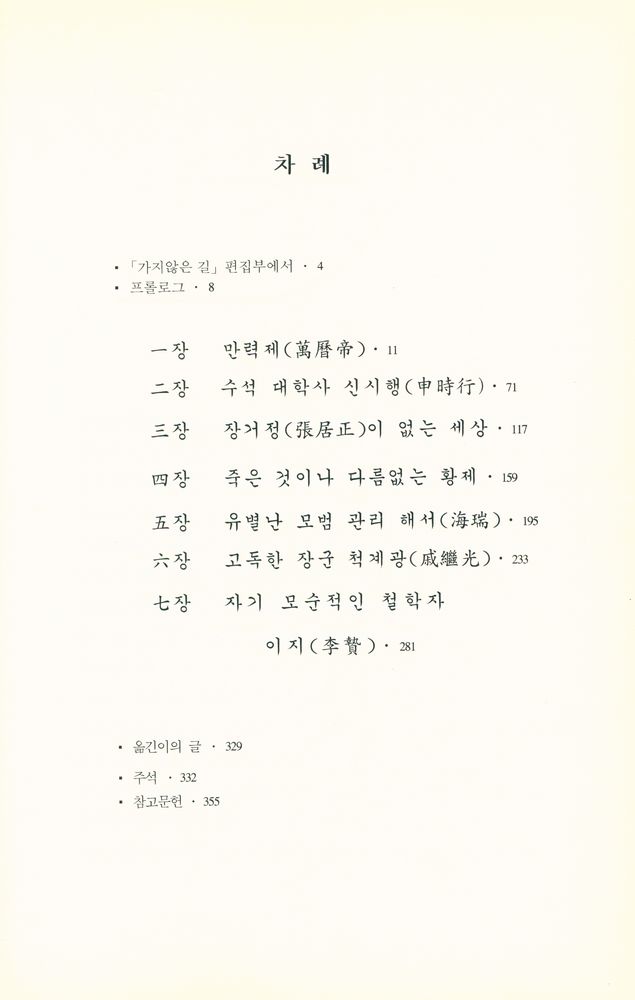 차 례
▪ 「가지않은 길」 편집부에서 · 4
▪ 프롤로그 · 8
一장 만력제(萬曆帝) · 11
二장 수석 대학사 신시행(申時行) · 71
三장 장거정(張居正)이 없는 세상 · 117
四장 죽은 것이나 다름없는 황제 · 159
五장 유별난 모범 관리 해서(海瑞) · 195
六장 고독한 장군 척계광(戚繼光) · 233
七장 자기 모순적인 철학자
이지(李贄) · 281
▪ 옮긴이의 글 · 329
▪ 주석 · 332
▪ 참고문헌 · 355